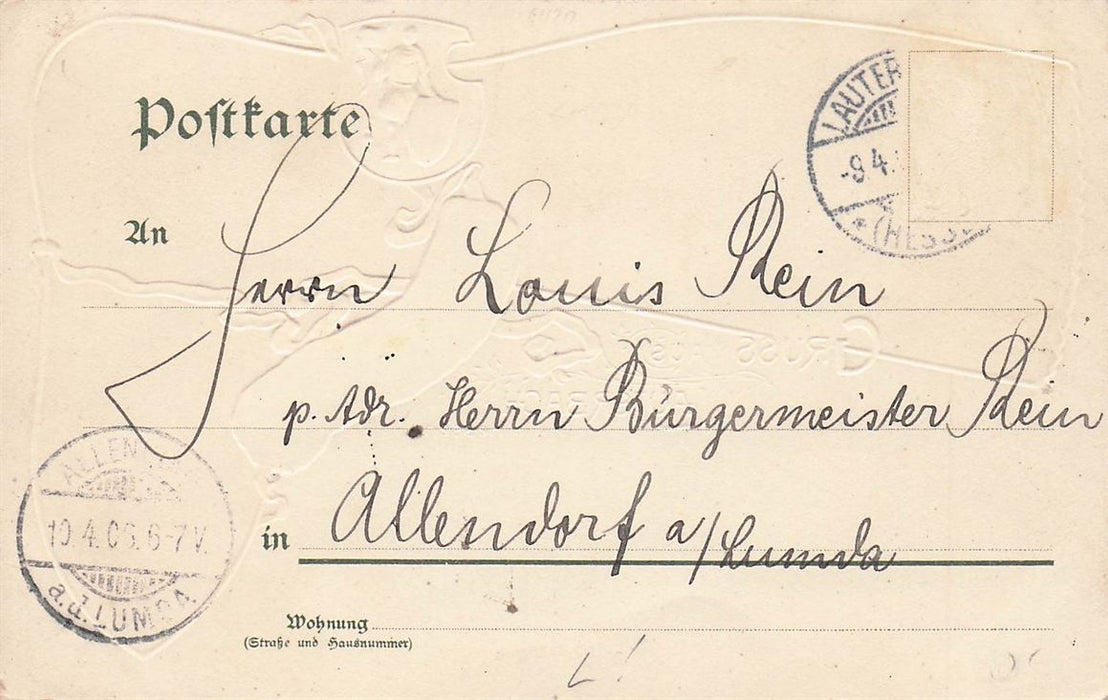 Postkarte
LAUTER
-9.4.
(HESS
An
Herrn Louis Rein
p. Adr. Herrn Bürgermeister Rein
in Allendorf a/Lumda
ALLEN
10.4.06.6-7V.
a.d.LUMDA.
Wohnung
(Straße und Hausnummer)
GRUSS AUS